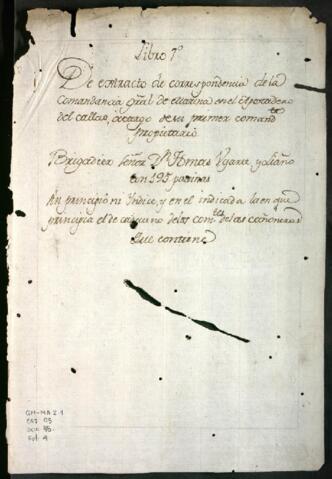 Libro 7º
De extracto de correspondencia de la
Comandancia gral de Marina en el Apostadero
del callao, acargo de su primer comandte
Propietario
Brigadier Señor Dn Tomas Ugarte, y Liaño
con 195 paginas
En principio ni Yndice, y en el indicada la en que
principia el de cada uno de los comtes de las cañoneras
que contiene
GM-MA 2.1
CAJ 03
DOC 45
Fol. 4